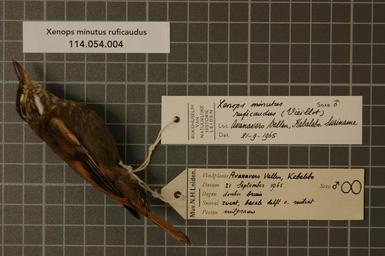 Xenops minutus ruficaudus
114.054.004
Xenops minutus Sexe ♂
ruficaudus (Vieillot)
Loc. Avanavero Vallen, Kabalebo Suriname
Dat. 21-9-1965
RIJKSMUSEUM
VAN
NATUURLIJKE
HISTORIE
LEIDEN
Mus. N.H. Leiden.
Vindplaats Avanavero Vallen, Kabalebo
Datum 21 September 1965 Sexe ♂
Oogen donker bruin
Snavel zwart, basale helft o.
Pooten
8